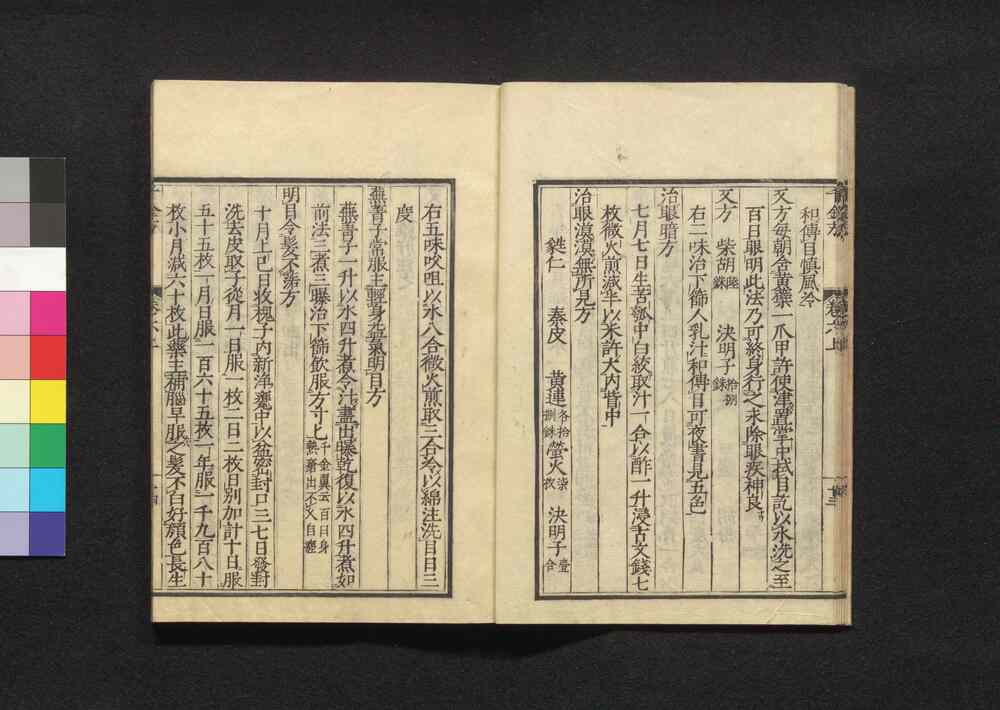 和傅目愼風冷
又方毎朝含黄蘗一爪甲許使津置掌中拭目訖以水洗之至
百日眼明此法乃可終身行之永除眼疾神良
又方 柴胡陸銖 決明子拾捌銖
右二味治下篩人乳汁和傅目可夜書見五色
治眼暗方
七月七日生苦瓠中白絞取汁一合以酢一升浸古文錢七
枚微火煎減半以米許大内眥中
治眼漠漠無所見方
蕤仁 秦皮 黄連各拾捌銖 螢火柒枚 決明子壹合
右五味㕮咀以水八合微火煎取三合冷以綿注洗目日三
度
蕪菁子常服主輕身益氣明目方
蕪菁子一升以水四升煮令汁盡出曝乾復以水四升煮如
前法三煮三曝治下篩飲服方寸匕千金翼云百日身熱瘡出不久自瘥
明目令髮不落方
十月上巳日收槐子内新淨甕中以盆密封口三七日發封
洗去皮取子從月一日服一枚二日二枚日別加計十日服
五十五枚一月日服一百六十五枚一年服一千九百八十
枚小月減六十枚此藥主補腦早服之髮不白好顔色長生